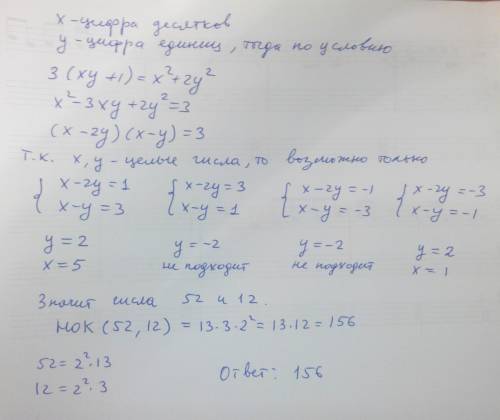 x - цифра десятков
y - цифра единиц, тогда по условию
3(xy+1) = x²+2y²
x²-3xy+2y²=3
(x-2y)(x-y)=3
Т.к. x, y - целые числа, то возможно только
{ x-2y=1 { x-2y=3 { x-2y=-1 { x-2y=-3
x-y=3 x-y=1 x-y=-3 x-y=-1
y=2 y=-2 y=-2 y=2
x=5 не подходит не подходит x=1
Значит числа 52 и 12.
НОК (52, 12) = 13·3·2² = 13·12 = 156
52 = 2²·13
12 = 2²·3
Ответ: 156